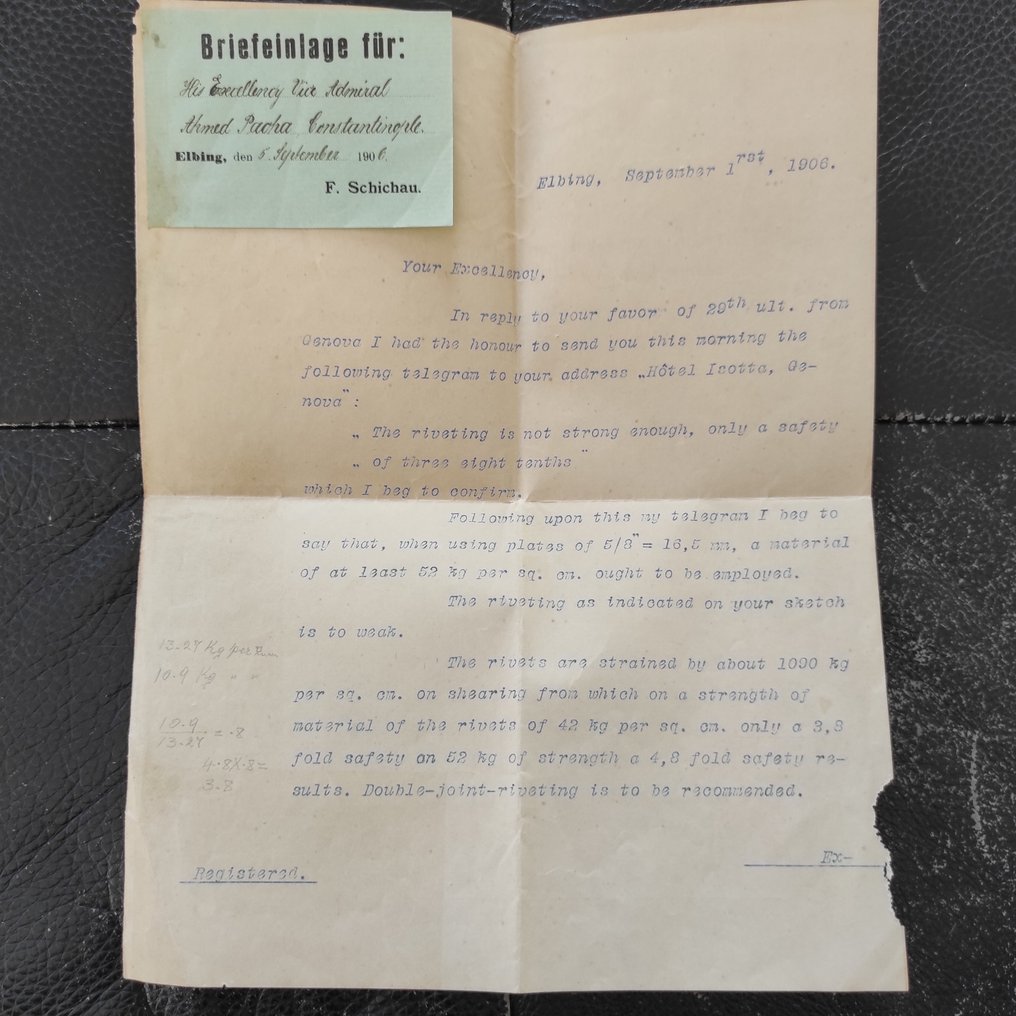 Briefeinlage für:
His Excellency Vice Admiral
Ahmed Pacha Constantinople.
Elbing, den 5. September 1906.
F. Schichau.
Elbing, September 1rst, 1906.
Your Excellency,
In reply to your favor of 29th ult. from
Genova I had the honour to send you this morning the
following telegram to your address „Hôtel Isotta, Ge-
nova":
„ The riveting is not strong enough, only a safety
„ of three eight tenths"
which I beg to confirm.
Following upon this my telegram I beg to
say that, when using plates of 5/8"= 16,5 mm, a material
of at least 52 kg per sq. cm. ought to be employed.
The riveting as indicated on your sketch
is to weak.
The rivets are strained by about 1090 kg
per sq. cm. on shearing from which on a strength of
material of the rivets of 42 kg per sq. cm. only a 3,8
fold safety on 52 kg of strength a 4,8 fold safety re-
sults. Double-joint-riveting is to be recommended.
13.27 Kg per mm
10.9 Kg " "
10.9
13.27 = .8
4.8 X .8 =
3.8
Ex-
Registered.